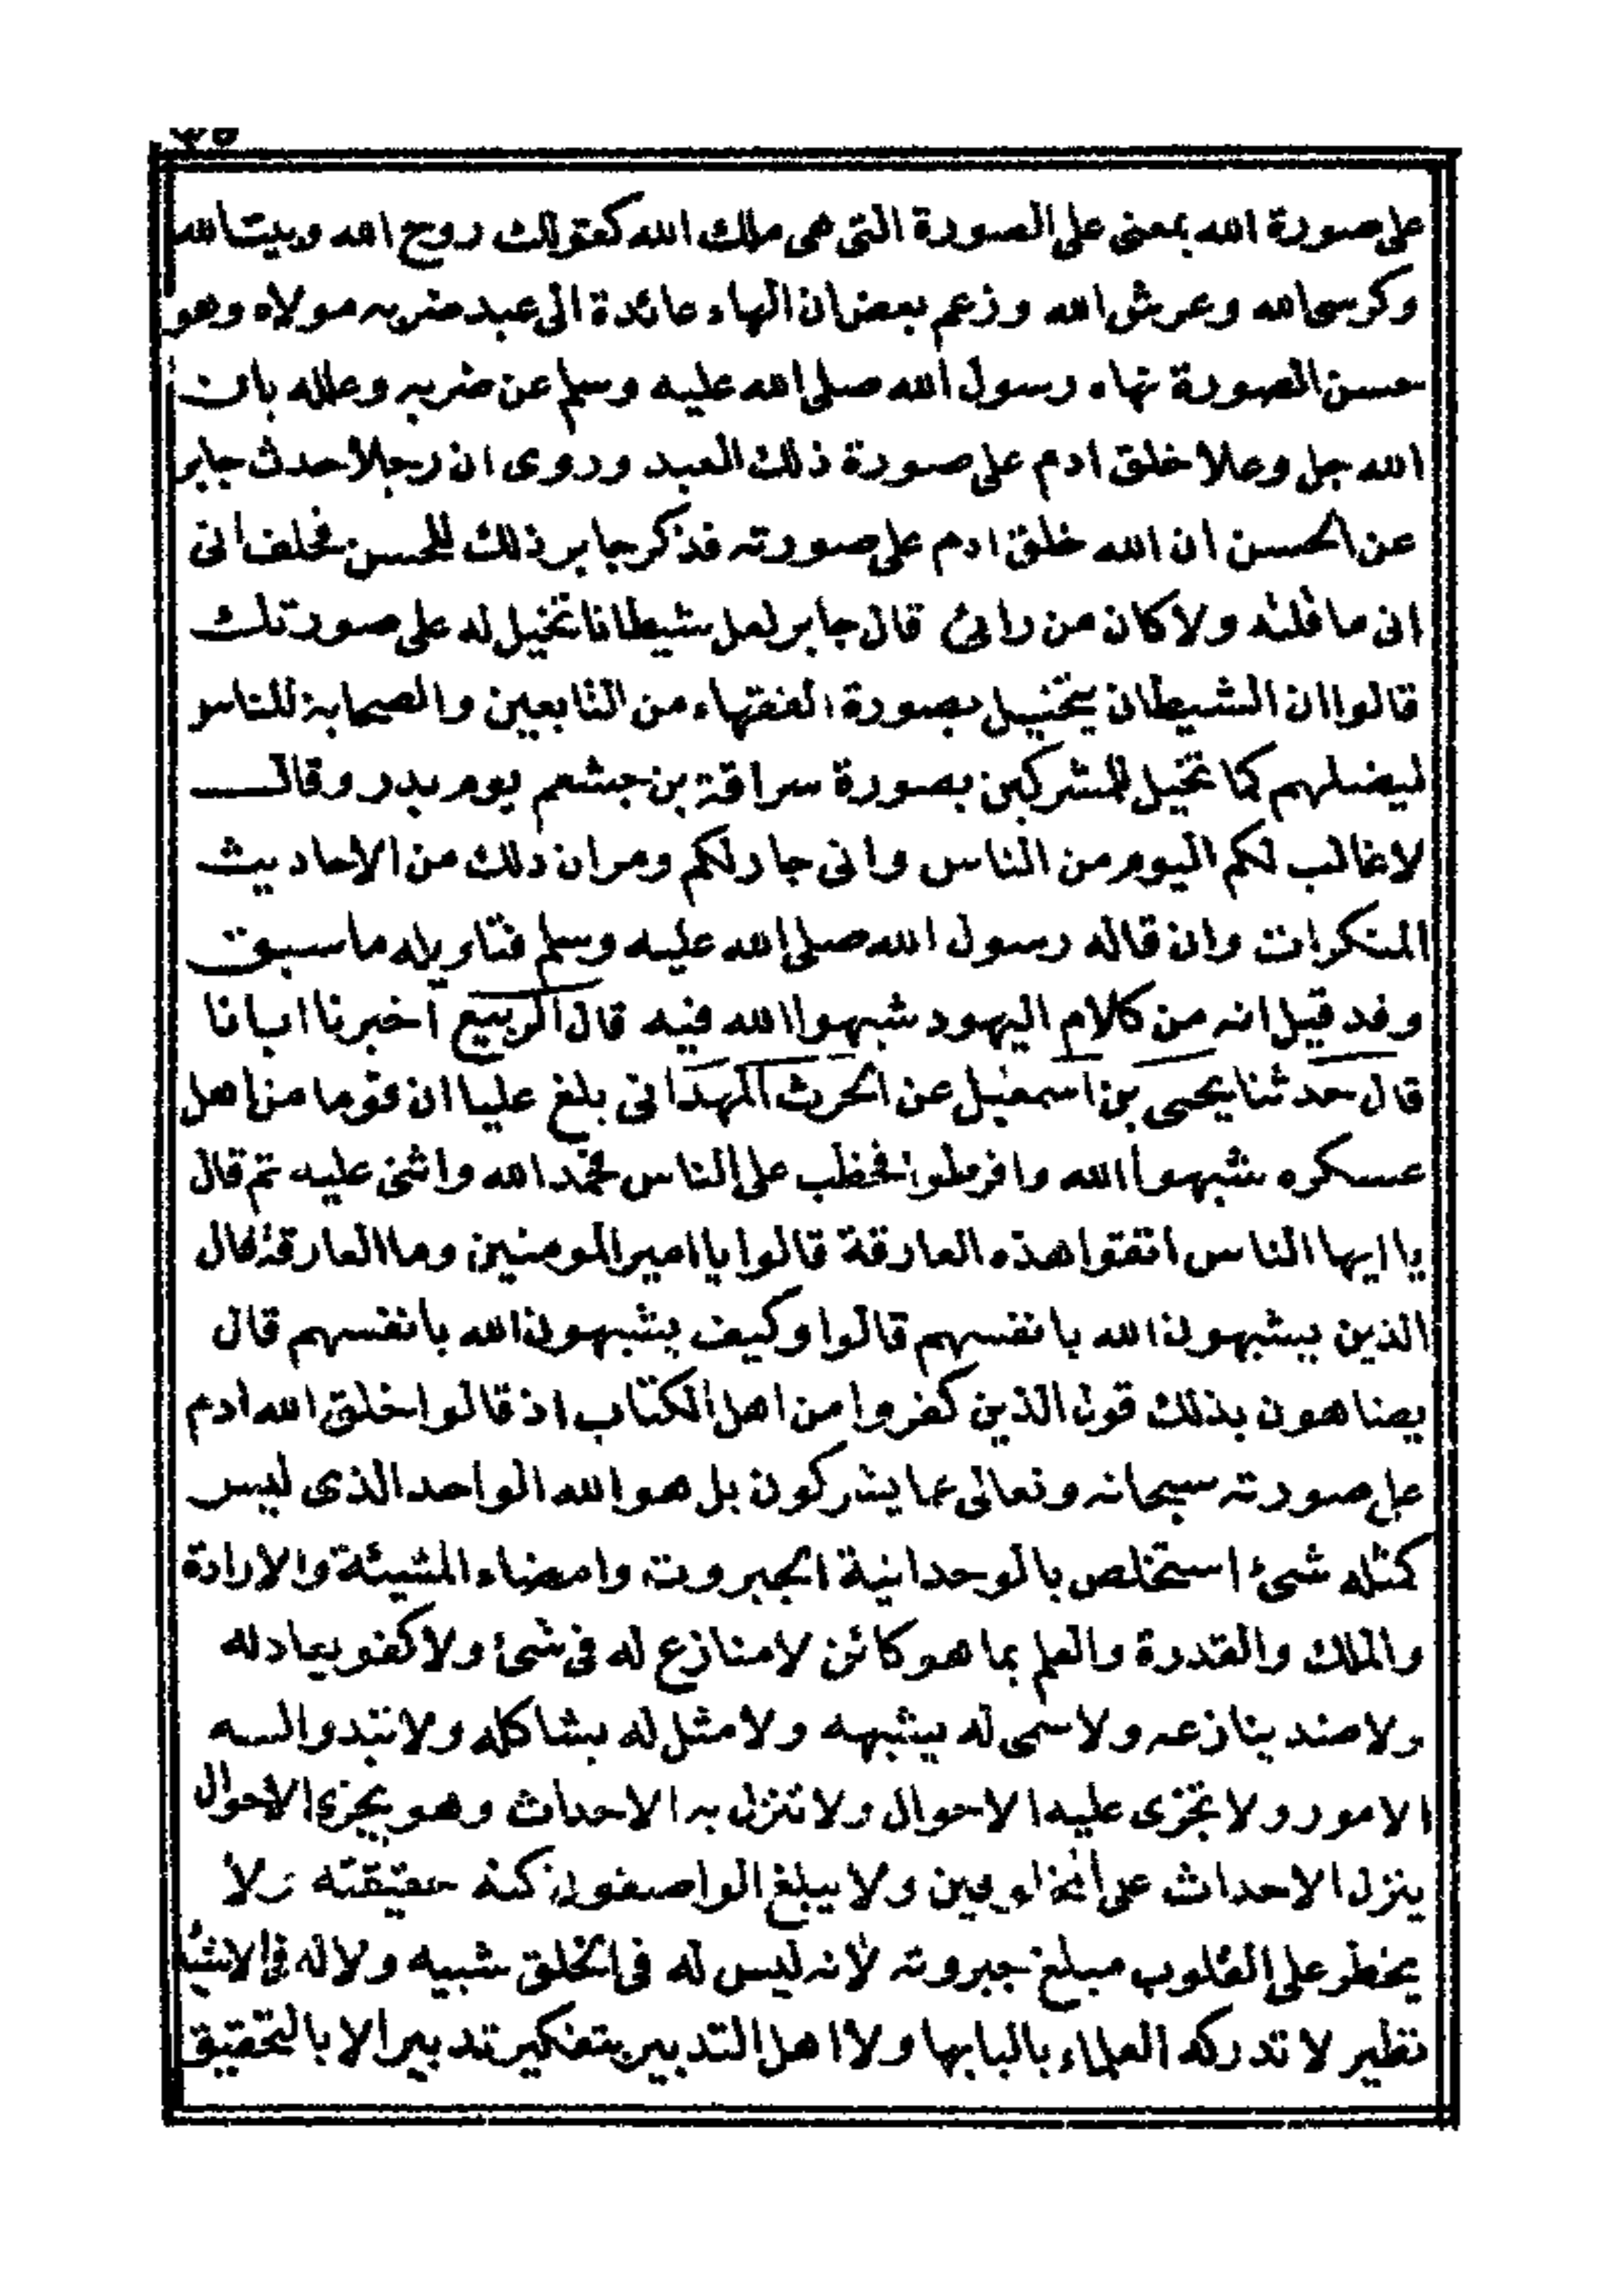 على صورة الله بمعنى على الصورة التى هى ملك الله كقولك روح الله وبيت الله
وكرسى الله وعرش الله وزعم بعض ان الهاء عائدة الى عبد ضربه مولاه وهو
حسن الصورة نهاه رسول الله صلى الله عليه وسلم عن ضربه وعلله بان
الله جل وعلا خلق ادم على صورة ذلك العبد وروى ان رجلا حدث جابر
عن الحسن ان الله خلق ادم على صورته فذكر جابر ذلك للحسن فحلف انى
انى ما قلته ولا كان من رايئ قال جابر لعل شيطانا تخيل له على صورتك
قالوا ان الشيطان يتخيل بصورة الفقهاء من التابعين والصحابة للناس
ليضلهم كما تخيل للمشركين بصورة سراقة بن جشعم يوم بدر وقال
لا غالب لكم اليوم من الناس وانى جار لكم ومر ان ذلك من الاحاديث
المنكرات وان قاله رسول الله صلى الله عليه وسلم فتاويله ما سبق
وقد قيل انه من كلام اليهود شبهوا الله فيه قال الربيع اخبرنا ابانا
قال حدثنا يحيى بن اسمعيل عن الحرث الهمدانى بلغ عليا ان قوما من اهل
عسكره شبهوا الله وافرطوا فخطب على الناس فحمد الله واثنى عليه ثم قال
يا ايها الناس اتقوا هذه العارقة قالوا يا امير المومنين وما العارقة قال
الذين يشبهون الله بانفسهم قالوا وكيف يشبهون الله بانفسهم قال
يضاهون بذلك قول الذين كفروا من اهل الكتاب اذ قالوا خلق الله ادم
على صورته سبحانه وتعالى عما يشركون بل هو الله الواحد الذى ليس
كمثله شىء استخلص بالوحدانية الجبروت وامضاء المشيئة والارادة
والملك والقدرة والعلم بما هو كائن لا منازع له فى شىء ولا كفو يعادله
ولا ضد ينازعه ولا سمى له يشبهه ولا مثل له يشاكله ولا تبدو اله
الامور ولا تجرى عليه الاحوال ولا تنزل به الاحداث وهو يجرى الاحوال
ينزل الاحداث على المخلوقين ولا يبلغ الواصفون كنه حقيقته ولا
يخطر على القلوب مبلغ جبروته لانه ليس له فى الخلق شبيه ولا له فى الاشياء
نظير لا تدركه العلماء بالبابها ولا اهل التدبير بتفكير تدبير الا بالتحقيق